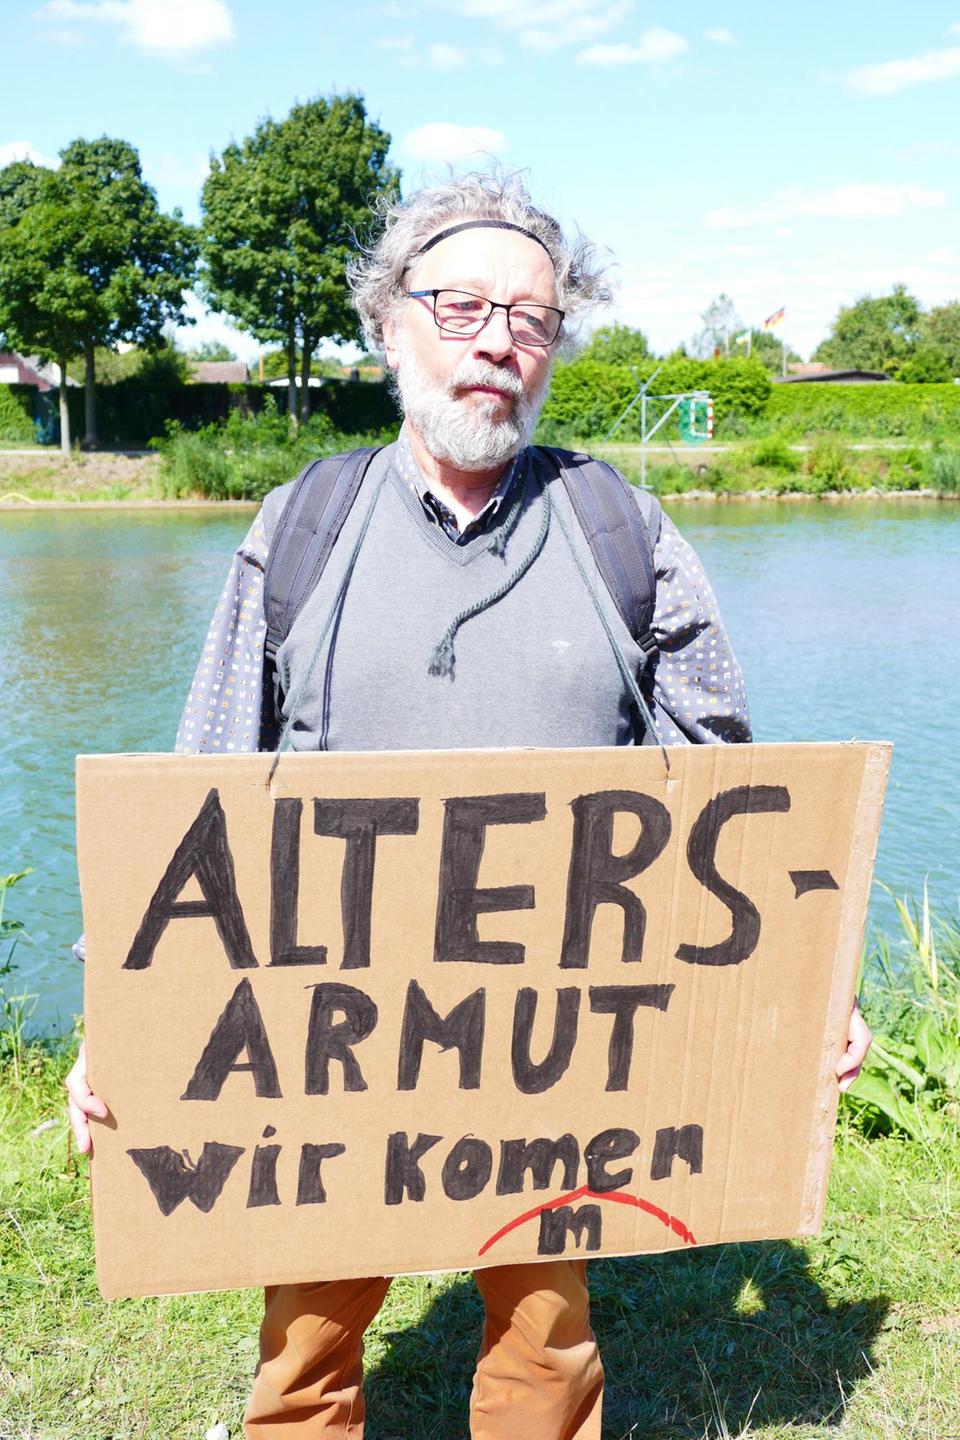 ALTERS-
ARMUT
wir komen
m